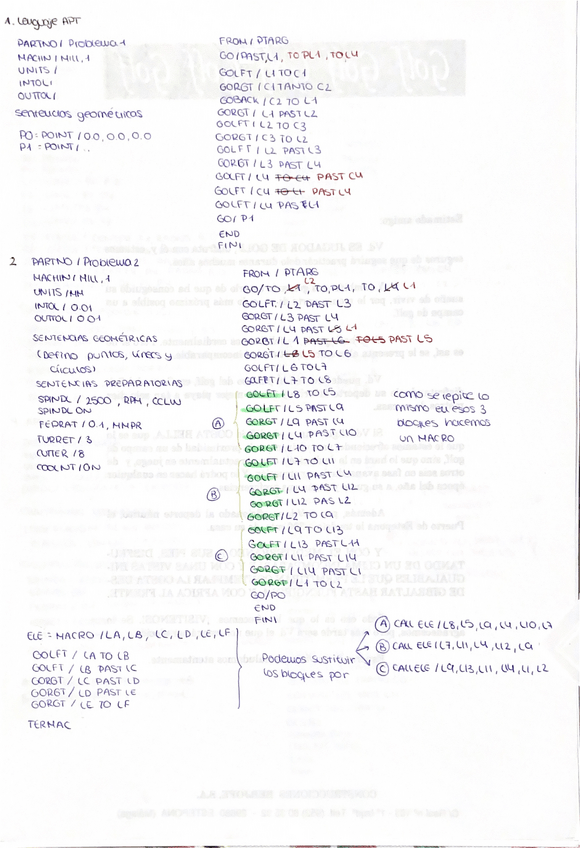 1. Lenguaje APT
PARTNO / Problema 1
MACHIN / MILL, 1
UNITS /
INTOL /
OUTTOL /
sentencias geométricas
P0 = POINT / 0.0, 0.0, 0.0
P1 = POINT / ..
FROM / PTARG
GO/PAST, L1, TO PL1, TO, L4
GOLFT / L1 TO C1
GORGT / C1 TANTO C2
GOBACK / C2 TO L1
GORGT / L1 PAST L2
GOLFT / L2 TO C3
GORGT / C3 TO L2
GOLFT / L2 PAST L3
GORGT / L3 PAST L4
GOLFT / L4 TO C4 PAST C4
GOLFT / C4 TO L1 PAST L4
GOLFT / L4 PAST L1
GO/ P1
END
FINI
2 PARTNO / Problema 2
MACHIN / MILL, 1
UNITS / MM
INTOL / 0.01
OUTTOL / 0.01
SENTENCIAS GEOMÉTRICAS
(Defino puntos, líneas y
círculos)
SENTENCIAS PREPARATORIAS
SPINDL / 2500, RPM, CCLW
SPINDL ON
FEDRAT / 0.1, MMPR
TURRET / 3
CUTTER / 8
COOLNT / ON
FROM / PTARG
L2
GO/TO, L1, TO, PL1, TO, L4 L1
GOLFT / L2 PAST L3
GORGT / L3 PAST L4
GORGT / L4 PAST L5 L1
GORGT / L1 PAST L6 TO L5 PAST L5
GORGT / L8 L5 TO L6
GOLFT / L6 TO L7
GOLFT / L7 TO L8
GOLFT / L8 TO L5
GOLFT / L5 PAST L9
GORGT / L9 PAST L4
GORGT / L4 PAST L10
GORGT / L10 TO L7
GOLFT / L7 TO L11
GOLFT / L11 PAST L4
GORGT / L4 PAST L12
GORGT / L12 PAS L2
GORGT / L2 TO L9
GOLFT / L9 TO L13
GOLFT / L13 PAST L11
GORGT / L11 PAST L14
GORGT / L14 PAST L1
GORGT / L1 TO L2
GO/P0
END
FINI
A
B
C
como se repite lo
mismo en esos 3
bloques hacemos
un MACRO
ELE = MACRO / LA, LB, LC, LD, LE, LF
GOLFT / LA TO LB
GOLFT / LB PAST LC
GORGT / LC PAST LD
GORGT / LD PAST LE
GORGT / LE TO LF
TERMAC
Podemos sustituir
los bloques por
A CALL ELE / L8, L5, L9, L4, L10, L7
B CALL ELE / L7, L11, L4, L12, L9
C CALL ELE / L9, L13, L11, L14, L1, L2